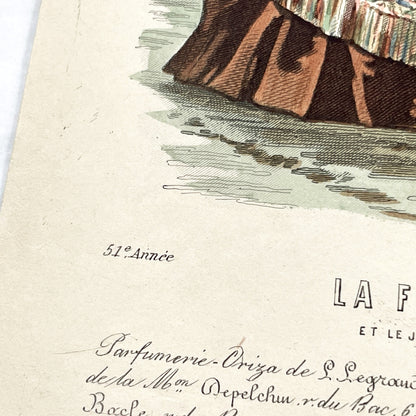 51e Année
LA F
ET LE J
Parfumerie-Oriza de L. Legrand
de la Mon Depelchin r. du Bac,